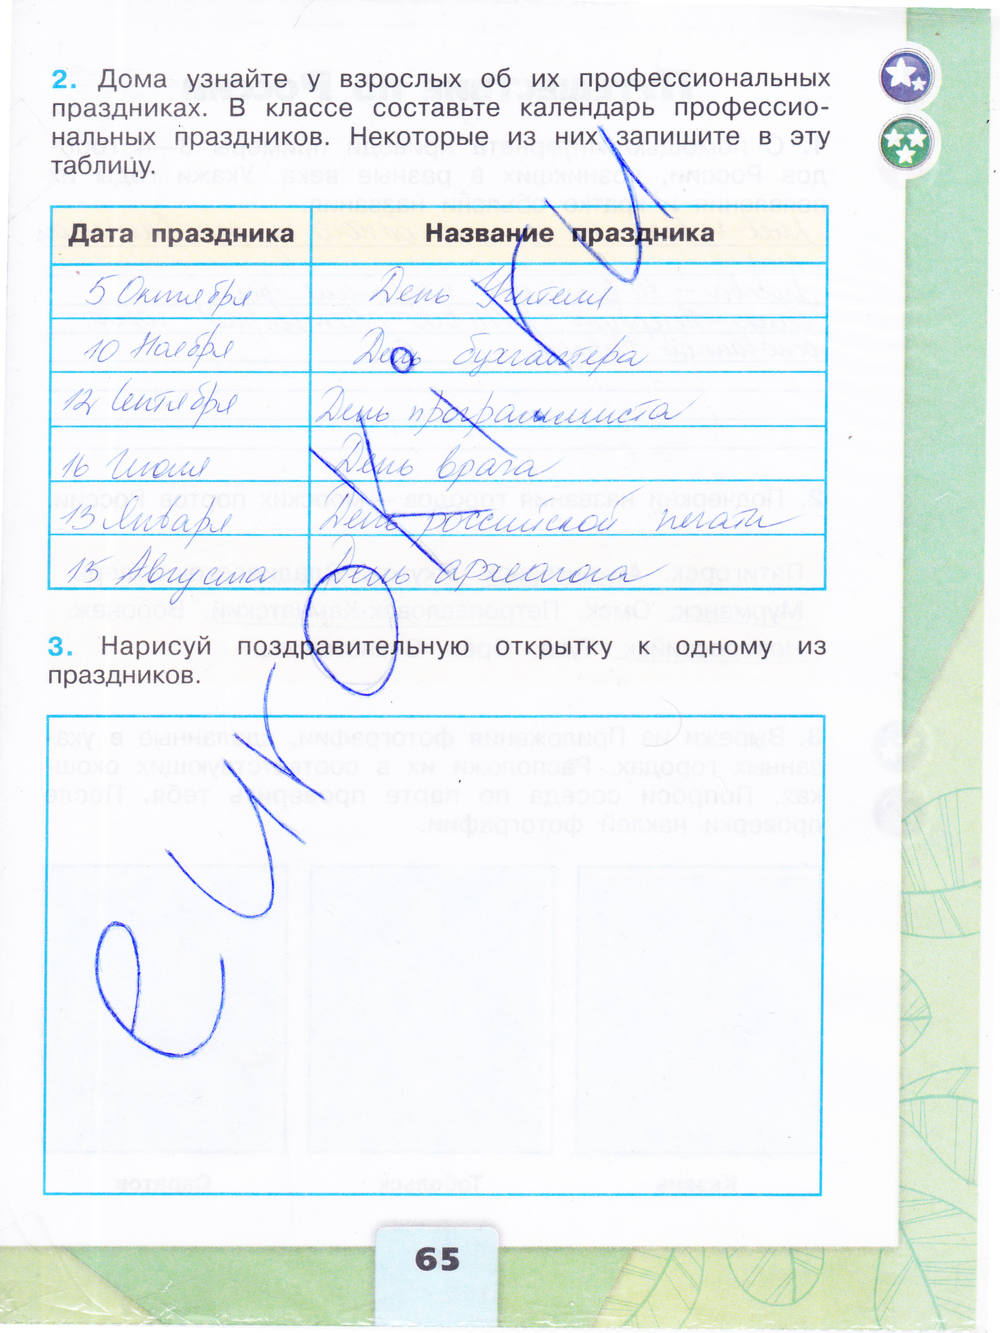 2. Дома узнайте у взрослых об их профессиональных
праздниках. В классе составьте календарь профессио-
нальных праздников. Некоторые из них запишите в эту
таблицу.
Дата праздника Название праздника
5 Октября День Учителя
10 Ноября День бухгалтера
12 Сентября День программиста
16 Июля День врача
13 Января День российской печати
15 Августа День археолога
3. Нарисуй поздравительную открытку к одному из
праздников.
65